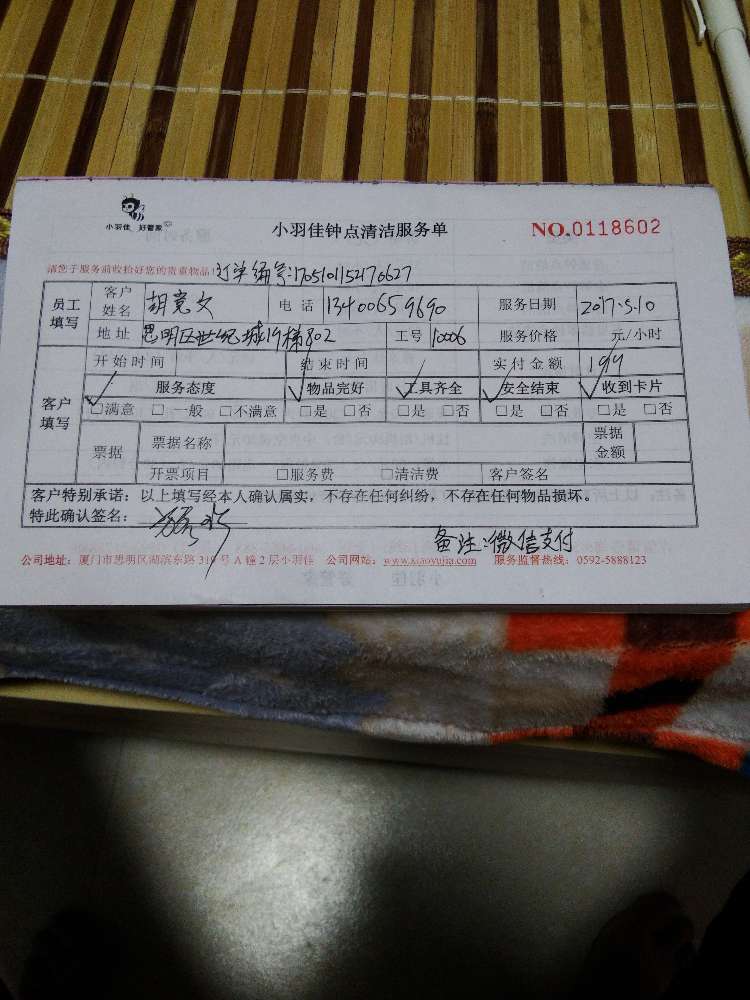 小羽佳 好管家
小羽佳钟点清洁服务单
NO.0118602
请您于服务前收拾好您的贵重物品!订单编号:170510115217 0627
员工填写 客户姓名 胡竞文 电话 13400659690 服务日期 2017.5.10
地址 思明区世纪城19栋802 工号 10006 服务价格 元/小时
客户填写 开始时间 结束时间 实付金额 199
服务态度 物品完好 工具齐全 安全结束 收到卡片
□满意 □一般 □不满意 □是 □否 □是 □否 □是 □否 □是 □否
票据 票据名称 票据金额
开票项目 □服务费 □清洁费 客户签名
客户特别承诺:以上填写经本人确认属实,不存在任何纠纷,不存在任何物品损坏。
特此确认签名:
备注:微信支付
公司地址:厦门市思明区湖滨东路 319 号 A 幢 2 层小羽佳 公司网站:www.xiaoyujia.com 服务监督热线:0592-5888123